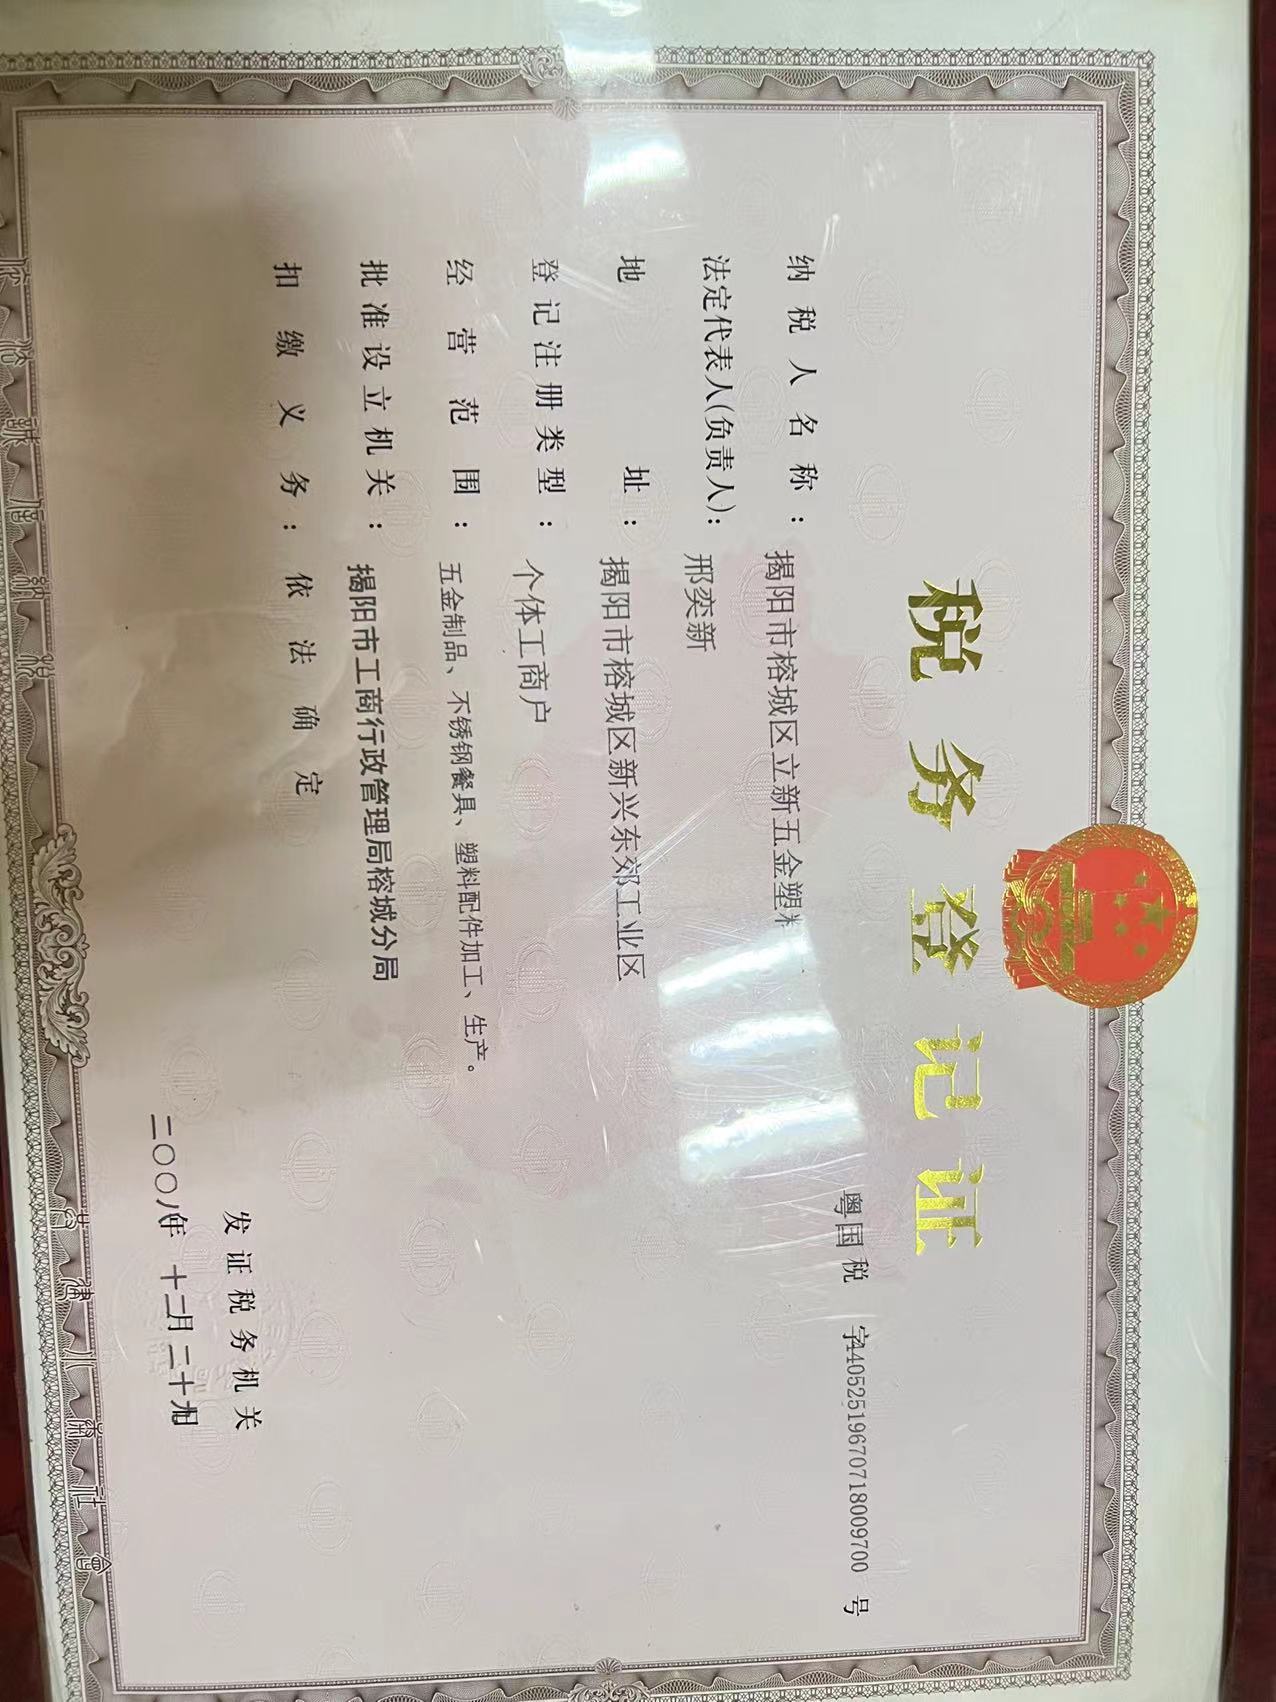 税务登记证
粤国税 字44052519670718009700 号
纳税人名称：揭阳市榕城区立新五金塑料
法定代表人(负责人)：邢奕新
地址：揭阳市榕城区新兴东郊工业区
登记注册类型：个体工商户
经营范围：五金制品、不锈钢餐具、塑料配件加工、生产。
批准设立机关：揭阳市工商行政管理局榕城分局
扣缴义务：依法确定
发证税务机关
二〇〇八年 十二月二十九日